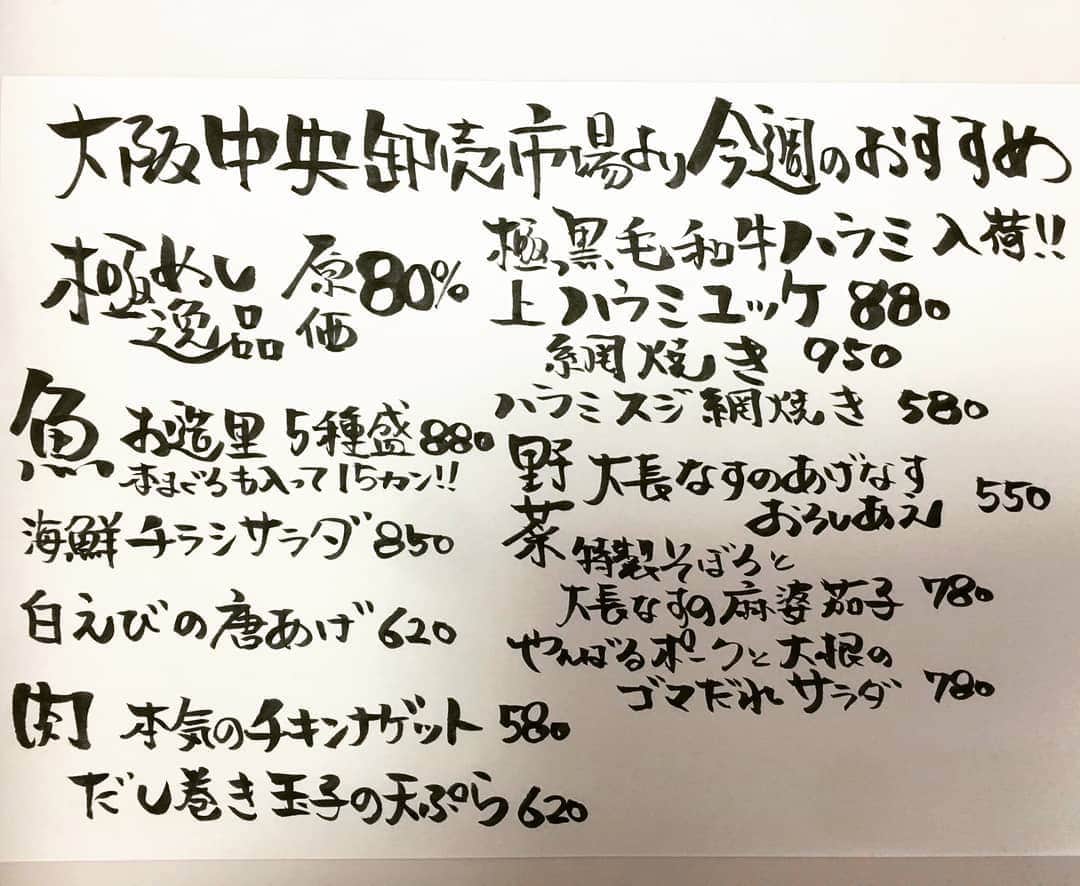 大阪中央卸売市場より今週のおすすめ
極めし 原価80%
逸品
魚 お造里 5種盛 880
本まぐろも入って15カン!!
海鮮チラシサラダ 850
白えびの唐あげ 620
肉 本気のチキンナゲット 580
だし巻き玉子の天ぷら 620
極黒毛和牛ハラミ入荷!!
上ハラミユッケ 880
網焼き 950
ハラミスジ網焼き 580
野菜 大長なすのあげなす
おろしあえ 550
特製そぼろと
大長なすの麻婆茄子 780
やんばるポークと大根の
ゴマだれサラダ 780